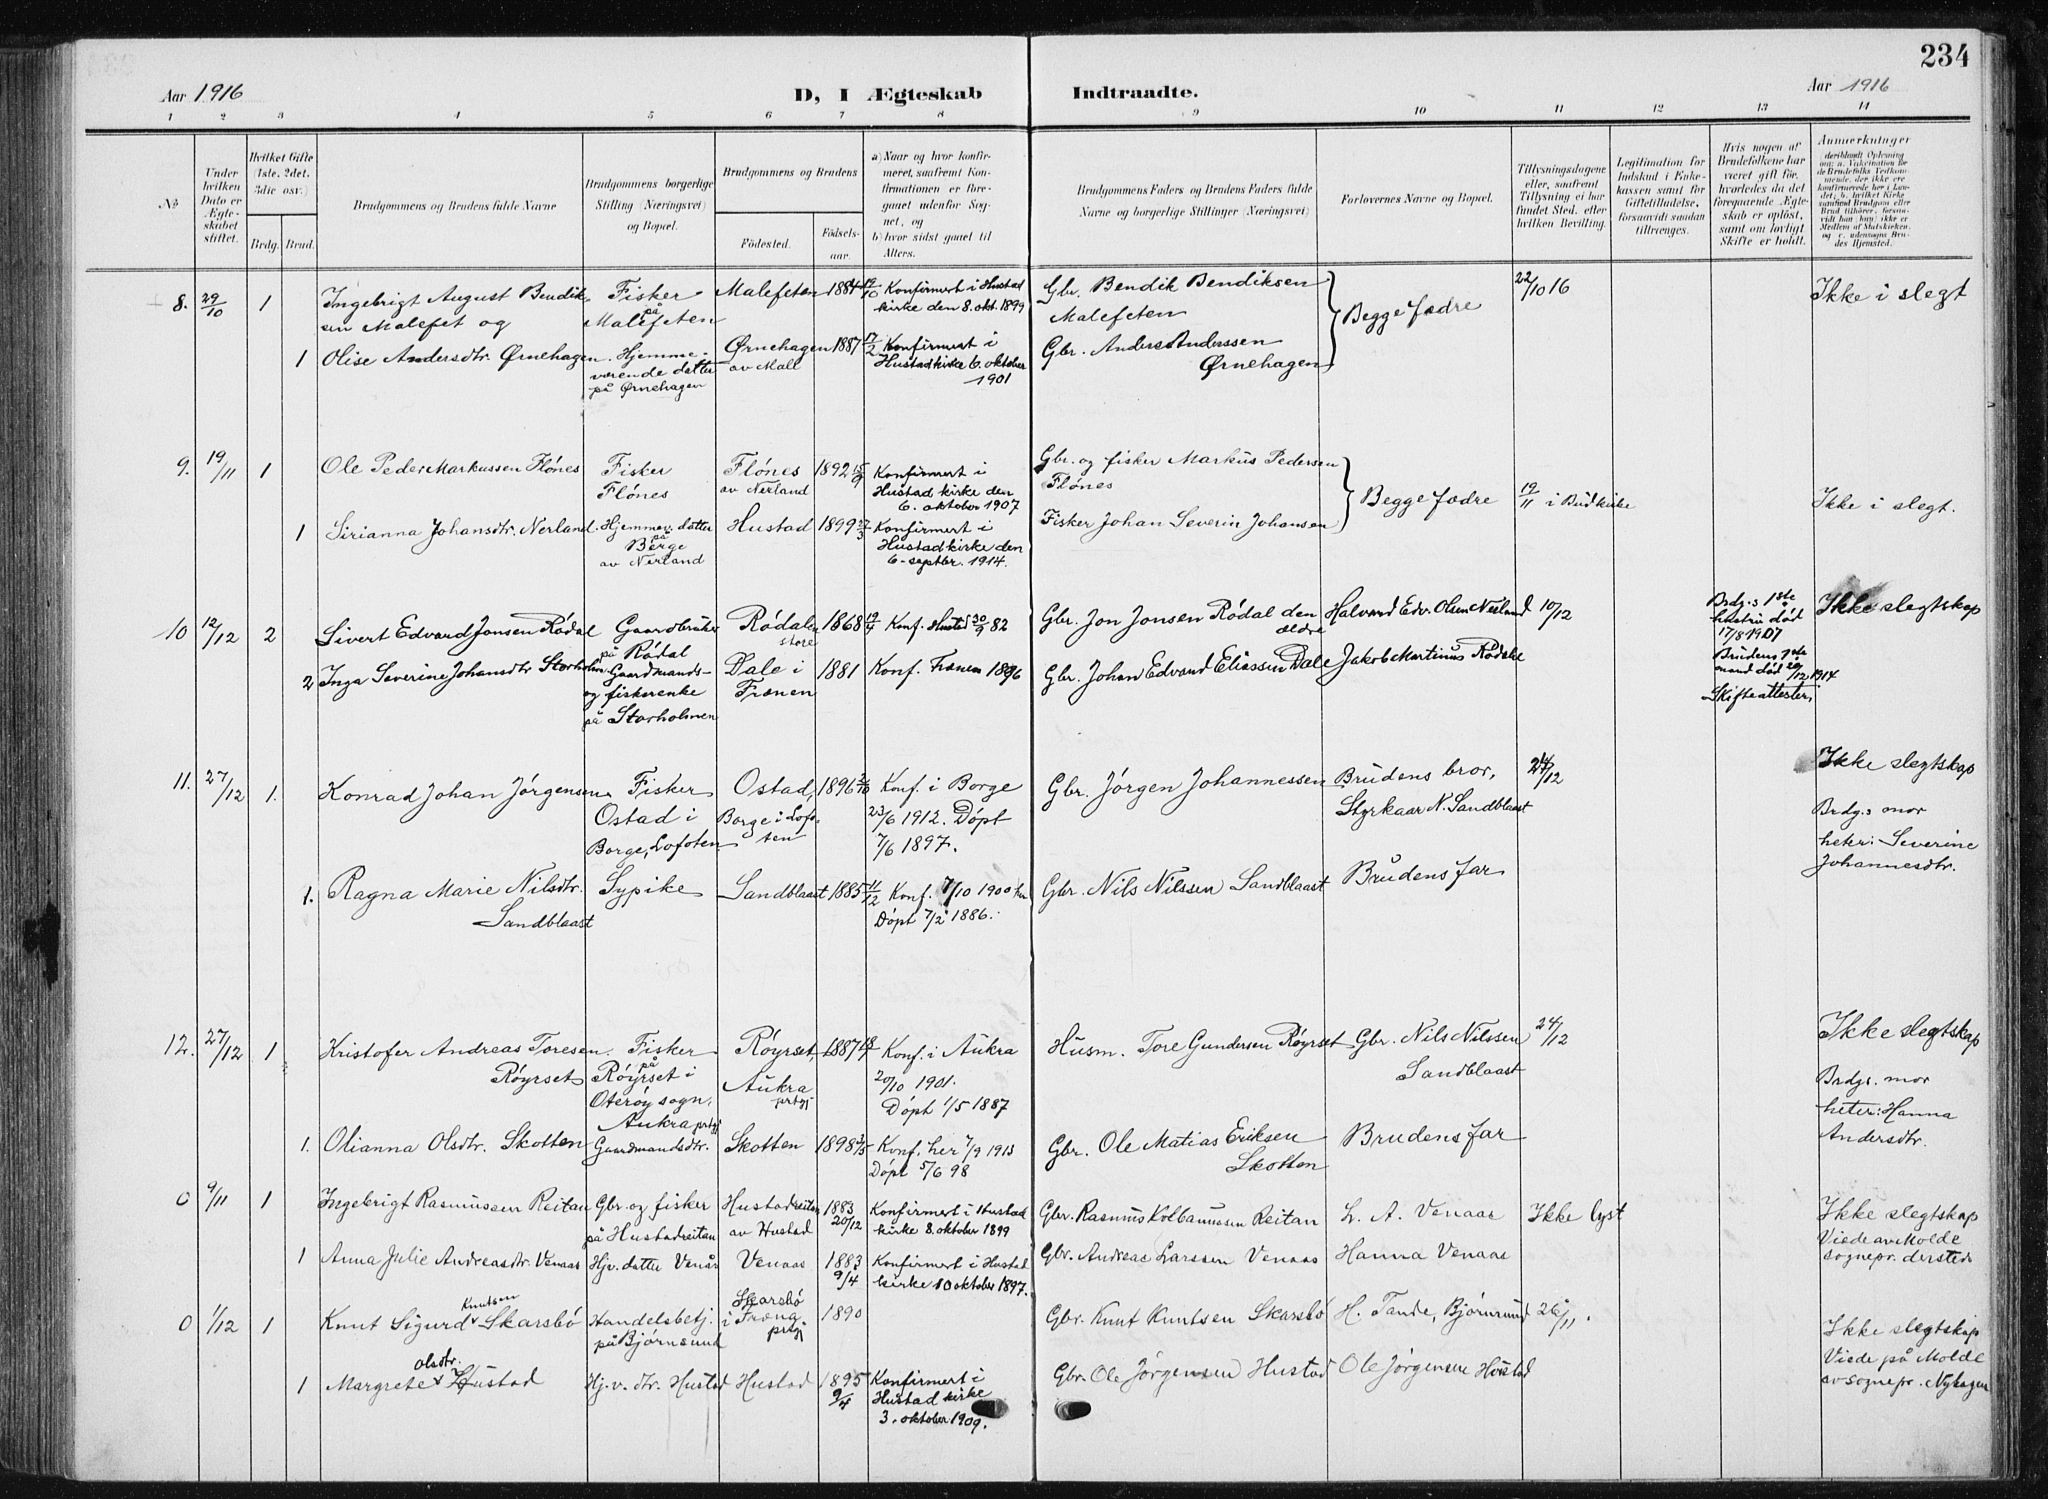 234
Aar 1916 D, I Ægteskab Indtraadte. Aar 1916
1 2 3 4 5 6 7 8 9 10 11 12 13 14
No
Under hvilken Dato er Ægteskabet stiftet.
Hvilket Gifte (1ste. 2det. 3die osv.)
Brdg. Brud.
Brudgommens og Brudens fulde Navne
Brudgommens borgerlige Stilling (Næringsvei) og Bopæl.
Brudgommens og Brudens
Fødested.
Fødselsaar.
a) Naar og hvor konfirmeret, saafremt Konfirmationen er foregaaet udenfor Sognet, og
b) hvor sidst gaaet til Alters.
Brudgommens Faders og Brudens Faders fulde Navne og borgerlige Stillinger (Næringsvei)
Forlovernes Navne og Bopæl.
Tillysningsdagene eller, saafremt Tillysning ei har fundet Sted, efter hvilken Bevilling.
Legitimation for Indskud i Enkekassen samt for Giftetilladelse, forsaavidt saadan tiltrænges.
Hvis nogen af Brudefolkene har været gift før, hvorledes da det foregaaende Ægteskab er opløst, samt om lovligt Skifte er holdt.
Anmærkninger
8. 29/10 1 Ingebrigt August Bendiksen Malefet og
Fisker på Malefeten
Malefeten 1884 19/10
Konfirmert i Hustad kirke den 8. okt. 1899
Gbr. Bendik Bendiksen Malefeten
Begge fædre
22/10 16
Ikke i slegt
1 Olise Andersdtr. Ørnehagen.
Hjemmeværende datter på Ørnehagen
Ørnehagen av Mall 1887
Konfirmert i Hustad kirke 6. oktober 1901
Gbr. Anders Anderssen Ørnehagen
9. 19/11 1 Ole Peder Markussen Flónes
Fisker Flónes
Flónes av Nerland 1892 15/9
Konfirmert i Hustad kirke den 6. oktober 1907
Gbr. og fisker Markus Pedersen Flónes
Begge fædre
19/11 i Budkirke
Ikke i slegt.
1 Sirianna Johansdtr. Nerland.
Hjemmev. datter på Berge av Nerland
Hustad 1899 27/3
Konfirmert i Hustad kirke den 6. septbr. 1914.
Fisker Johan Severin Johansen
10 12/12 2 Sivert Edvard Jonsen Rødal
Gaardbruker på Rødal
Rødal store 1868 19/4
Konf. Hustad 30/9 82
Gbr. Jon Jonsen Rødal den ældre
Halvard Edv. Olsen Nesland
10/12
Brdg.s 1ste hustru død 17/8 1907
Ikke slegtskap
2 Inga Severine Johansdtr. Storholmen.
Gaardmands- og fiskerenke på Storholmen
Dale i Frænen 1881
Konf. Frænen 1896
Gbr. Johan Edvard Eliassen Dale
Jakob Martinus Rødal
Brudens 1ste mand død 29/12 1914
Skifteattester.
11. 27/12 1. Konrad Johan Jørgensen
Fisker Ostad i Borge, Lofoten
Ostad, Borge i Lofoten 1896
Konf. i Borge 23/6 1912. Døpt 7/6 1897.
Gbr. Jørgen Johannessen
Brudens bror, Styrkaar N. Sandblaast
24/12
Ikke slegtskap
Brdg.s mor heter: Severine Johannesdtr.
1. Ragna Marie Nilsdtr. Sandblaast
Sypike
Sandblaast 1885 11/12
Konf. 7/10 1900 her
Døpt 7/2 1886.
Gbr. Nils Nilssen Sandblaast
Brudens far
12. 27/12 1 Kristofer Andreas Toresen Røyrset
Fisker på Røyrset i Oterøy sogn, Aukra prtgj
Røyrset, Aukra prtgj 1887
Konf. i Aukra 20/10 1901.
Døpt 1/5 1887
Husm. Tore Gundersen Røyrset
Gbr. Nils Nilssen Sandblaast
24/12
Ikke slegtskap
Brdgs. mor heter: Hanna Andersdtr.
1. Olianna Olsdtr. Skotten
Gaardmandsdtr.
Skotten 1898
Konf. her 7/9 1913
Døpt 5/6 98
Gbr. Ole Matias Eriksen Skotten
Brudens far
0 9/11 1 Ingebrigt Rasmussen Reitan
Gbr. og fisker på Hustadreitan
Hustadreitan av Hustad 1883 20/12
Konfirmert i Hustad kirke 8. oktober 1899
Gbr. Rasmus Kolbanussen Reitan
L. A. Venaas
Ikke lyst
Ikke slegtskap
Viede av Molde sognepr. dersteds
1 Anna Julie Andreasdtr. Venaas
Hjv. datter Venås
Venaas 1883 9/4
Konfirmert i Hustad kirke 10 oktober 1897.
Gbr. Andreas Larssen Venaas
Hanna Venaas
0 1/12 1 Knut Sigurd Knutsen Skarsbó
Handelsbetj. på Bjørnsund
Skarsbó i Fræna prtgj 1890
Gbr. Knut Knutsen Skarsbó
H. Tande, Bjørnsund
26/11.
Ikke slegtskap
Viede på Molde av sognepr. Nyhagen
1 Margrete Olsdtr. Hustad
Hj.v. dtr. Hustad
Hustad 1895 9/4
Konfirmert i Hustad kirke 3. oktober 1909.
Gbr. Ole Jørgensen Hustad
Ole Jørgensen Hustad